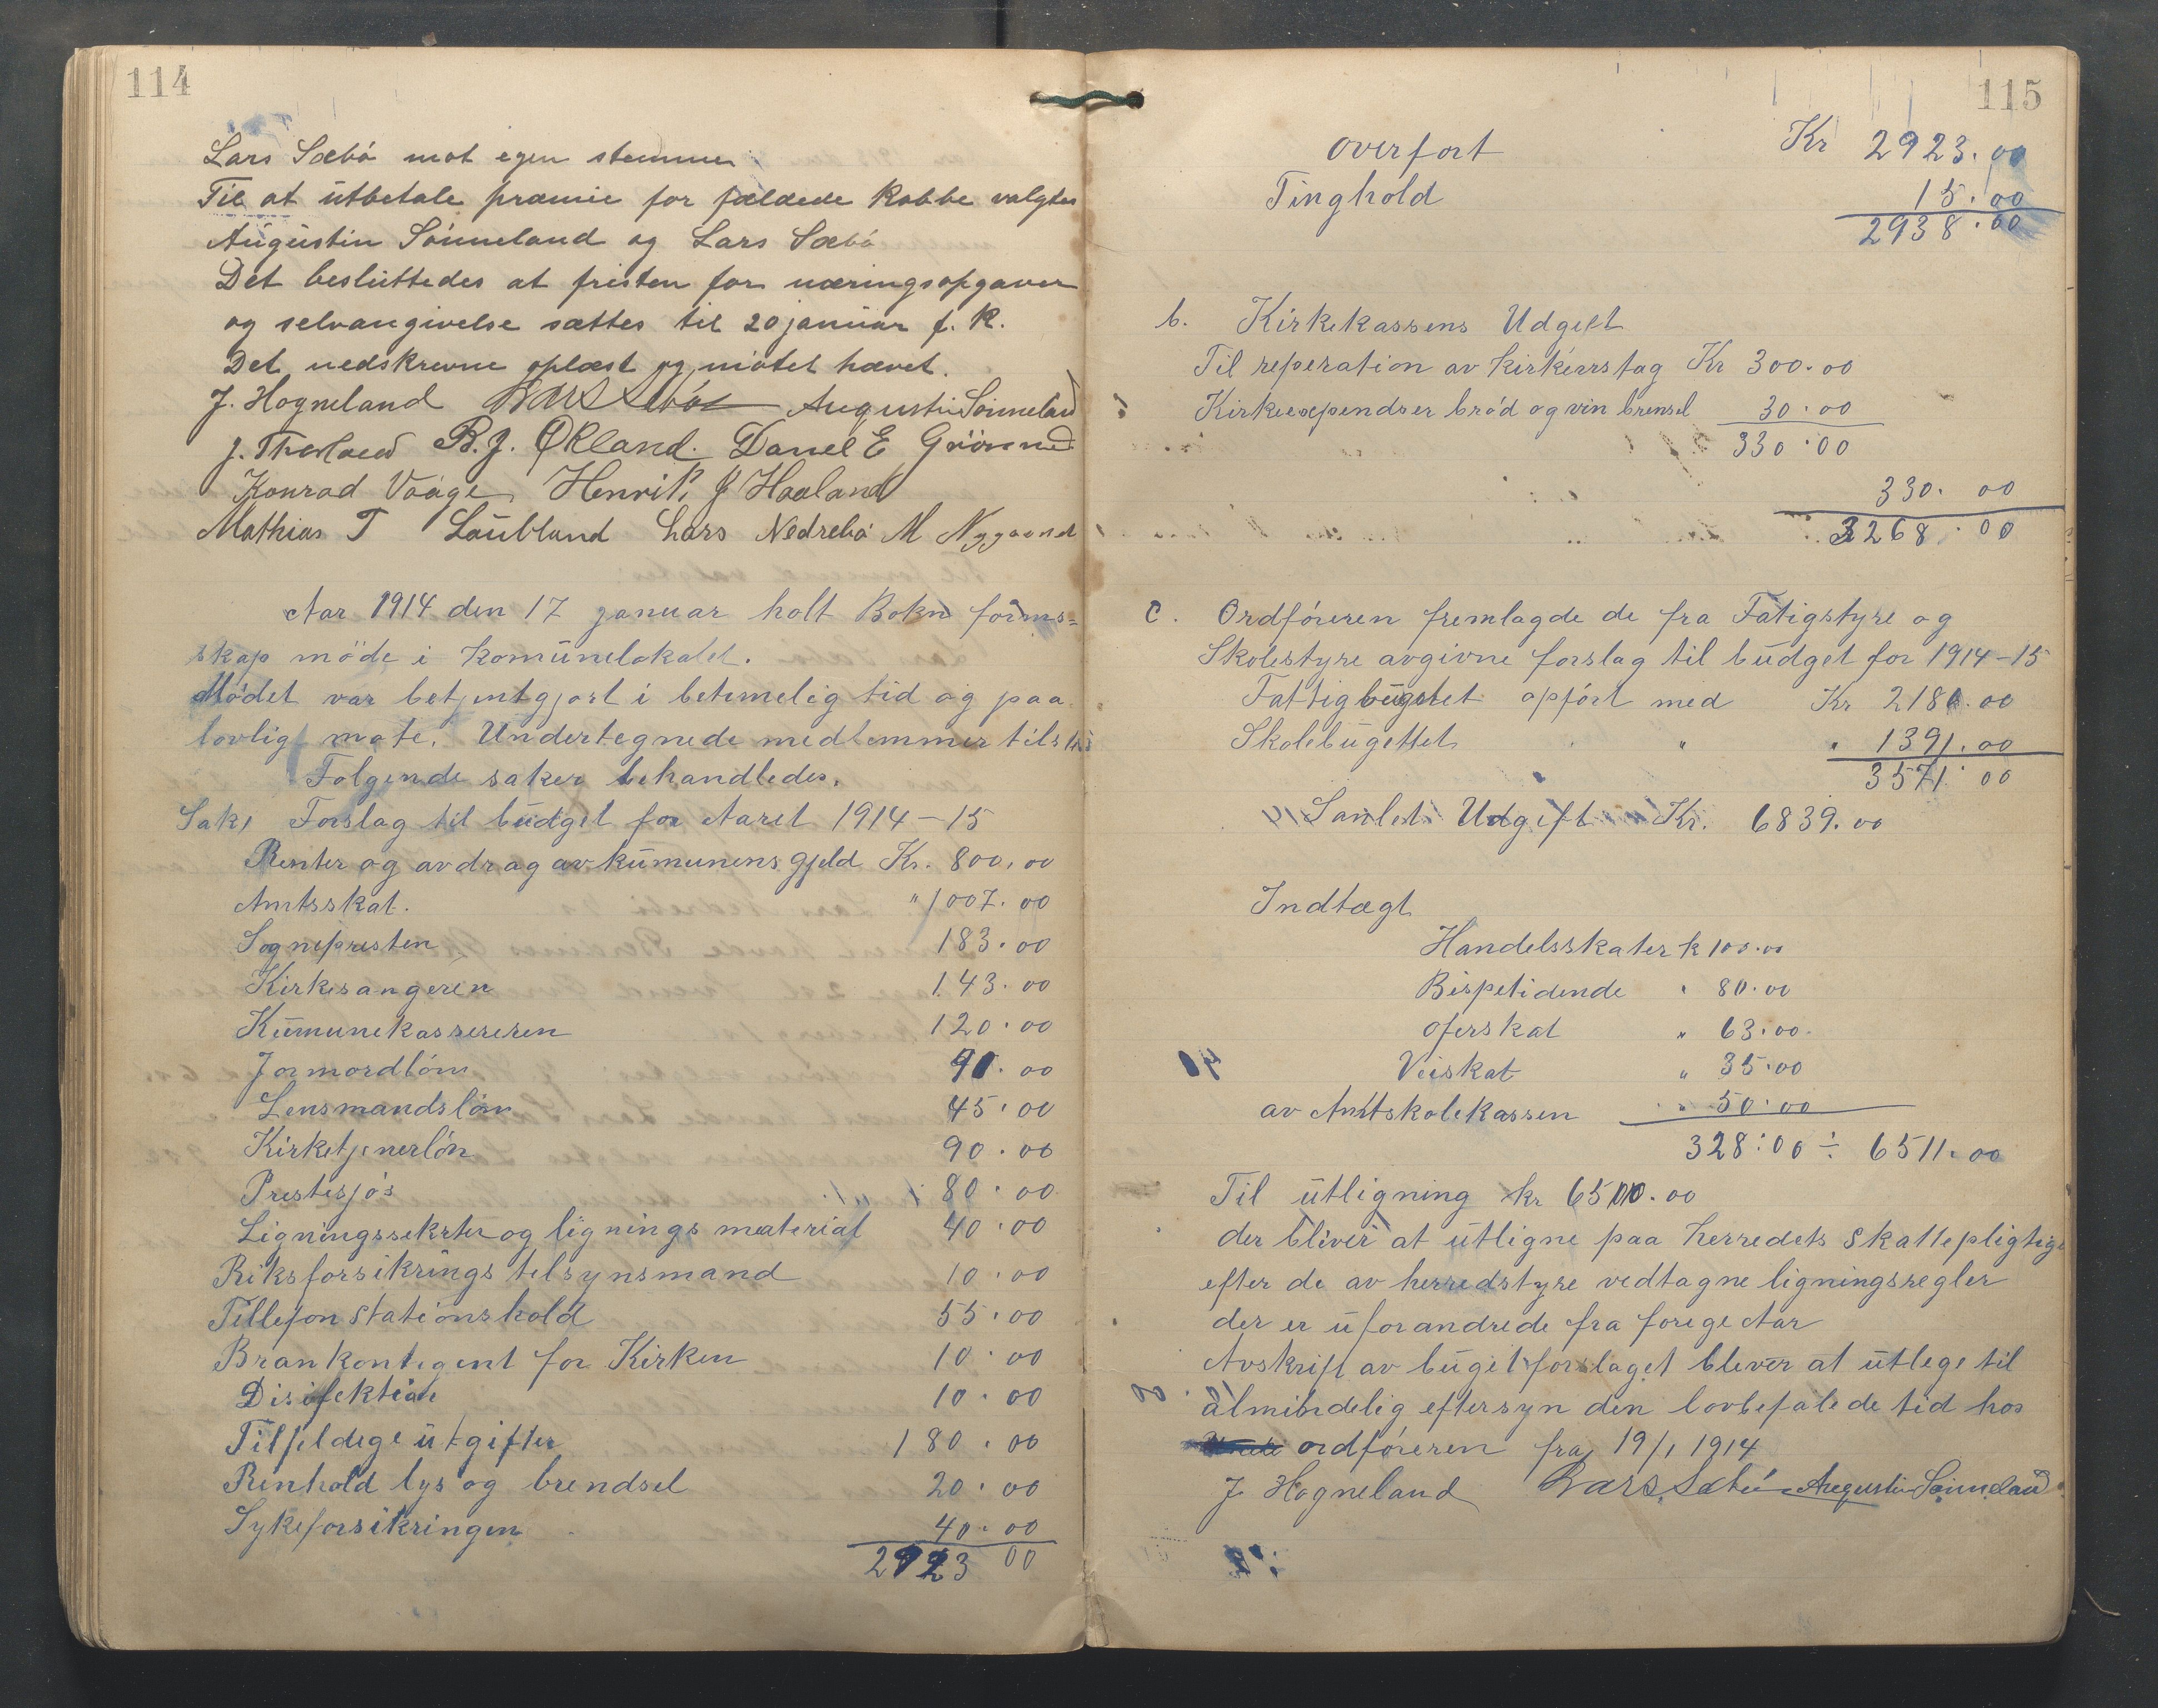 114
Lars Sæbó mot egen stemme
Til at ŭtbetale præmie for fældede Kobbe valgtes
Aŭgŭstin Sónneland og Lars Sæbó
Det beslŭttedes at fristen for næringsopgaver
og selvangivelse sættes til 20 janŭar f. K.
Det nedskrevne oplæst og mótet hævet.
J. Hogneland Lars Sebó Augustin Sónneland
J. B. J. Økland. Danel E Grönne
Konrad Vaage Henrik J Haaland
Mathias T Laŭbland Lars Nedrebó M Nygaard
Aar 1914 den 17 januar holt Bokn forms=
skap möde i Komŭnelokalet.
Mödet var betjentgjort i betimelig tid og paa
lovlig mote. Undertegnede medlemmer tilsted
Folgende saker behandledes.
Sak 1 Forslag til bŭdget for Aaret 1914-15
Renter og avdrag av kŭmunens gjeld Kr. 800.00
Amtsskat. " 1007.00
Sognepresten 183.00
Kirkesangeren 143.00
Kŭmunekassereren 120.00
Jormordlón 90.00
Lensmandslón 45.00
Kirketjenerlón 90.00
Prestesjós 80.00
Ligningssekrter og lignings material 40.00
Riksforsikrings telsynsmand 10.00
Tillefon Stationshold 55.00
Brankontigent for Kirken 10.00
Disifektion 10.00
Tilfeldige ŭtgifter 180.00
Renhold lys og brendsel 20.00
Sykeforsikringen 40.00
2923 00
115
overfort Kr 2923.00
Tinghold 15.00
2938.00
b. Kirkekassens Udgift
Til reperation av kirkenstag Kr 300.00
Kirkeexpendser bród og vin brensel 30.00
330.00
330.00
3268.00
c. Ordfóreren fremlagde de fra Fatigstyre og
Skolestyre avgivne forslag til bŭdget for 1914-15
Fattigbŭgetet opfórt med Kr 2180.00
Skolebŭgettet " " 1391.00
3571.00
Samlet Udgift Kr. 6839.00
Indtægt
Handelsskater k 100.00
Bispetidende " 80.00
Oferskat " 63.00
Veiskat " 35.00
av Amtskolekassen " 50.00
328.00 ÷ 6511.00
Til ŭtligning kr 6500.00
der bliver at ŭtligne paa herredets Skattepligtige
efter de av herredstyre vedtagne ligningsregler
der er ŭforandrede fra forege Aar
Avskrift av bŭgetforslaget blever at ŭtlege til
almindelig eftersyn den lovbefalede tid hos
ordfóreren fra 19/1 1914
J Hogneland Lars Sæbó Augustin Sónneland